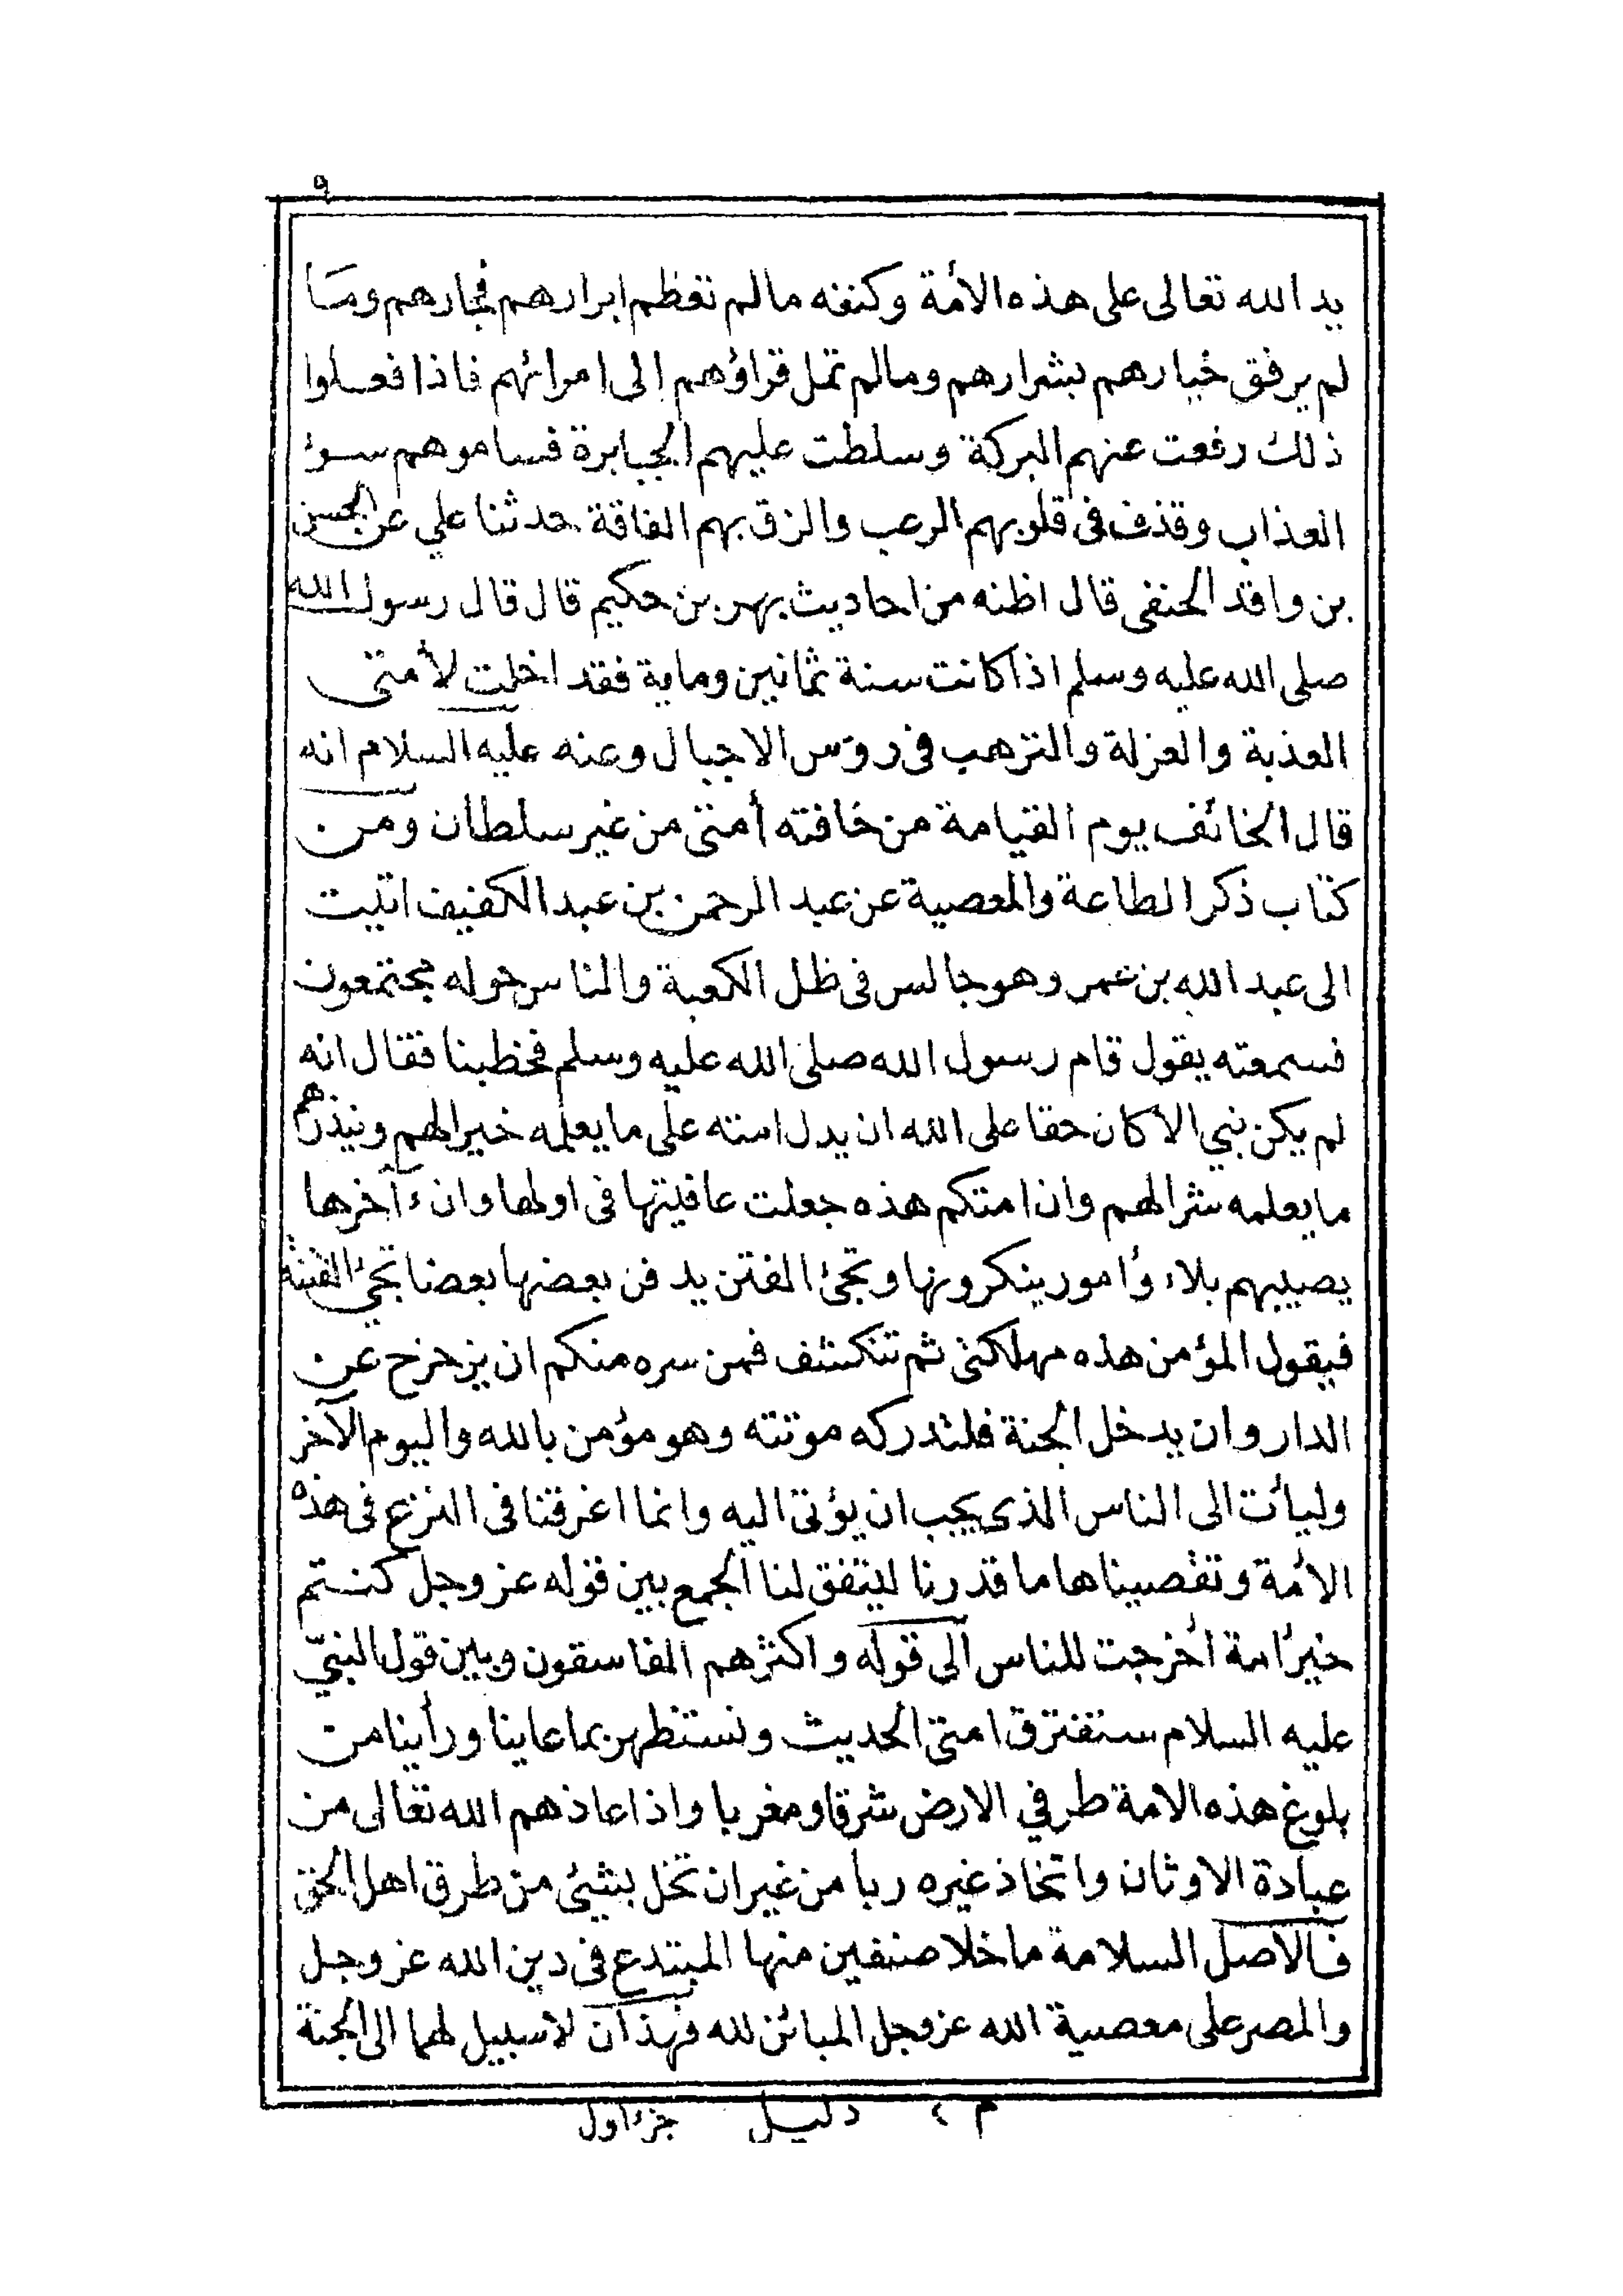 ٩
يد الله تعالى على هذه الأمة وكنفه مالم تعظم ابرارهم فجارهم وما
لم يرفق خيارهم بشرارهم ومالم تمل قراؤهم الى امرائهم فاذا فعلوا
ذلك رفعت عنهم البركة وسلطت عليهم الجبابرة فساموهم سوء
العذاب وقذف فى قلوبهم الرعب والزق بهم الفاقة حدثنا علي عن الحسن
بن واقد الحنفى قال اظنه من احاديث بهز بن حكيم قال قال رسول الله
صلى الله عليه وسلم اذا كانت سنة ثمانين وماية فقد احلت لأمتى
العذبة والعزلة والترهب فى روس الاجبال وعنه عليه السلام انه
قال الخائف يوم القيامة من خافته أمتى من غير سلطان ومن
كتاب ذكر الطاعة والمعصية عن عبد الرحمن بن عبد الكفيف اتيت
الى عبد الله بن عمر وهو جالس فى ظل الكعبة والناس حوله مجتمعون
فسمعته يقول قام رسول الله صلى الله عليه وسلم فخطبنا فقال انه
لم يكن نبي الا كان حقا على الله ان يدل امته على ما يعلمه خيرا لهم وينذرهم
ما يعلمه شرا لهم وان امتكم هذه جعلت عافيتها فى اولها وان ءاخرها
يصيبهم بلاء وأمور ينكرونها وتجئ الفتن يدفن بعضها بعضا تجئ الفتنة
فيقول المؤمن هذه مهلكتى ثم تنكشف فمن سره منكم ان يزحزح عن
الدار وان يدخل الجنة فلتدركه موتته وهو مؤمن بالله واليوم الآخر
وليأت الى الناس الذى يحب ان يؤتى اليه وانما اغرقنا فى النزع فى هذه
الأمة وتقصيناها ما قدرنا ليتفق لنا الجمع بين قوله عز وجل كنتم
خير أمة أخرجت للناس الى قوله واكثرهم الفاسقون وبين قول النبيّ
عليه السلام ستفترق امتى الحديث ونستظهر بما عاينا ورأينا من
بلوغ هذه الامة طرفي الارض شرقا ومغربا واذا عاذهم الله تعالى من
عبادة الاوثان واتخاذ غيره ربا من غير ان تخل بشئ من طرق اهل الحق
فالاصل السلامة ما خلا صنفين منها المبتدع فى دين الله عز وجل
والمصر على معصية الله عز وجل المبائن لله فهذان لا سبيل لهما الى الجنة
م ٢ دليل جزء اول